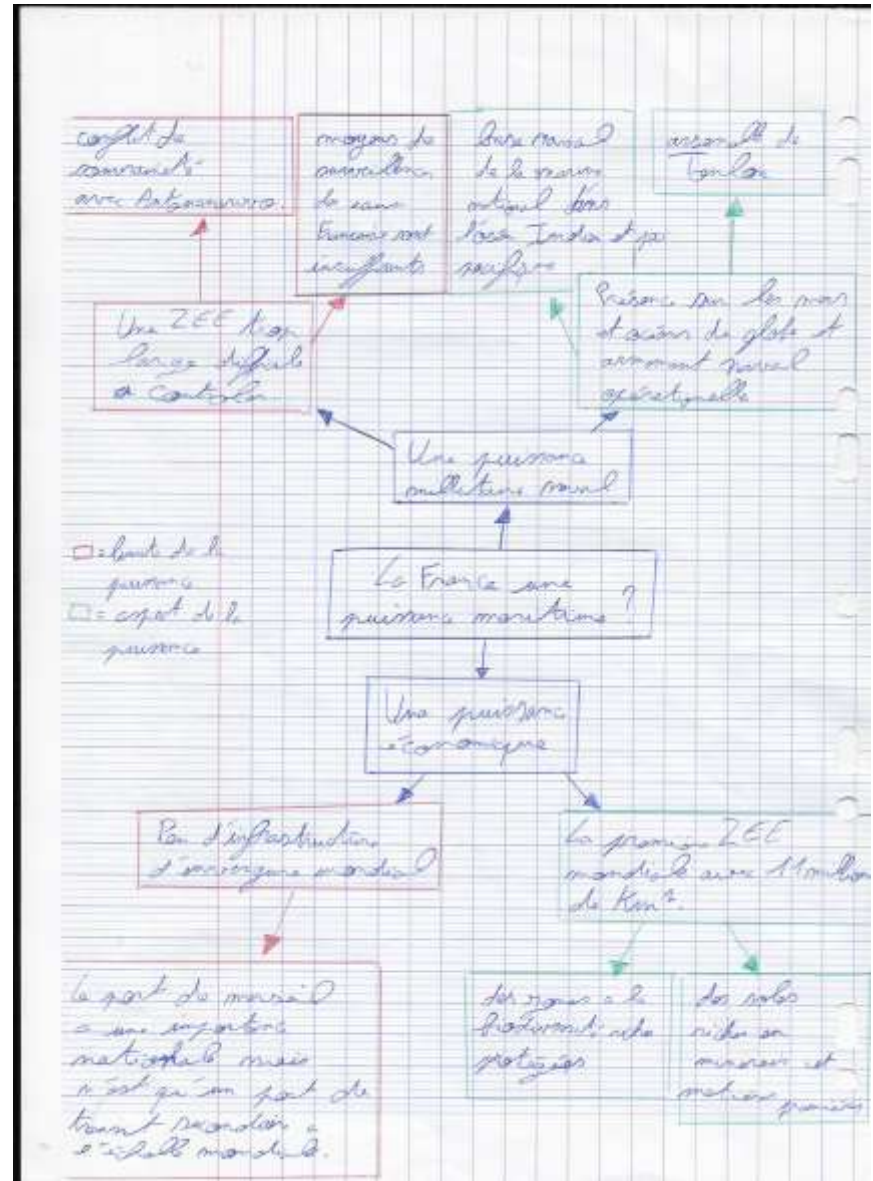 conflit de
souveraineté
avec
moyens de
surveillance
de eaux
sont
insuffisants
base naval
de la marine
national dans
Indien et
pacifique
de
Toulon
Une ZEE trop
large difficile
a controler
Présence sur les mers
et océans du globe et
armement naval
opérationnelle
Une puissance
millitaire naval
= limite de la
puissance
= aspect de la
puissance
La France une
puissance maritime ?
Une puissance
économique
Peu d'infrastructure
d'envergure mondial
La première ZEE
mondiale avec 11 million
de Km².
le port de
a une importance
national mais
n'est qu'un port de
transit secondaire a
l'échelle mondiale.
des zones a la
riche
protégées
des soles
riches en
minerais et
matière première